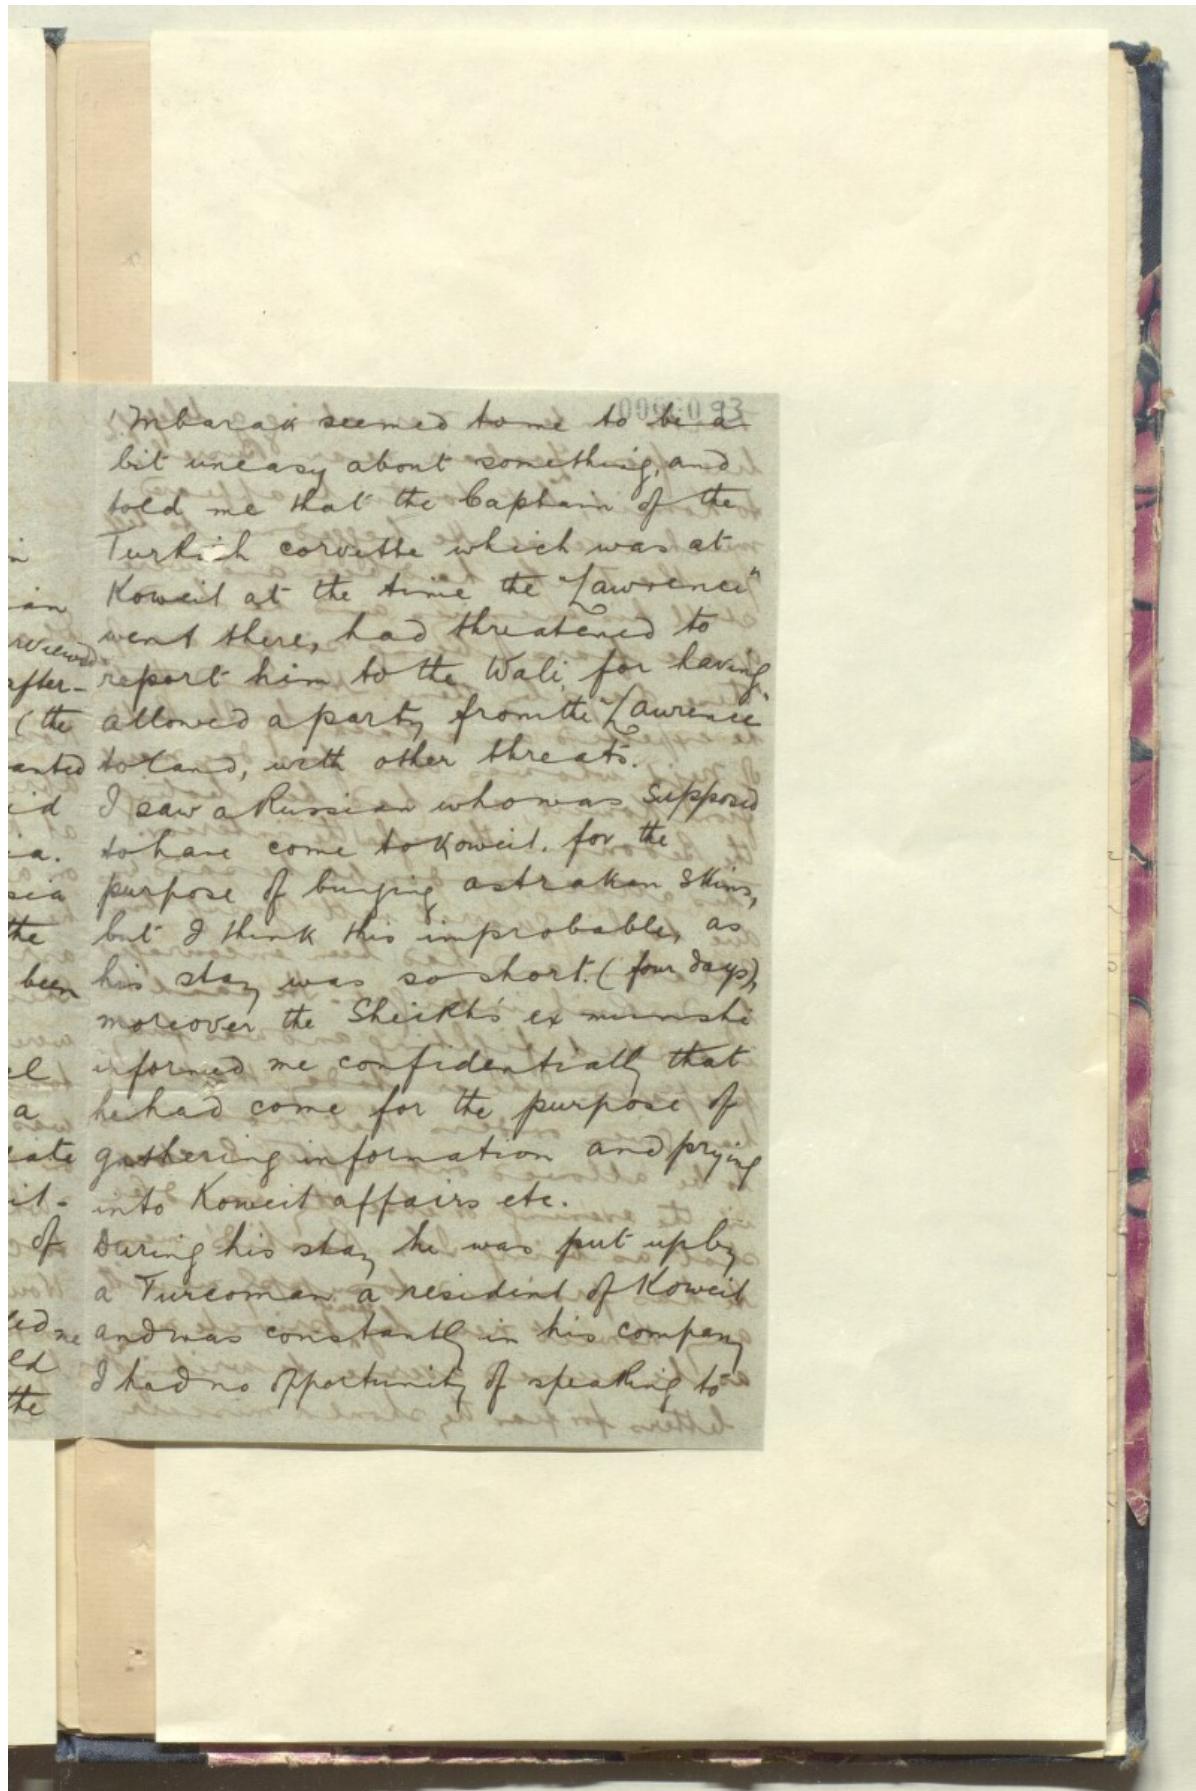 'Mbarak seemed to me to be a
bit uneasy about something, and
told me that the Captain of the
Turkish corvette which was at
Koweit at the time the "Lawrence"
went there, had threatened to
report him to the Wali, for having
allowed a party from the "Lawrence"
to land, with other threats.
I saw a Russian who was supposed
to have come to Koweit, for the
purpose of buying astrakan skins,
but I think this improbable, as
his stay was so short. (four days),
moreover the Sheikh's ex munshi
informed me confidentially that
he had come for the purpose of
gathering information and prying
into Koweit affairs etc.
During his stay he was put up by
a Turcoman a resident of Koweit
and was constantly in his company
I had no opportunity of speaking to
after-
(the
anted
id
ia.
sia
the
been
el
a
iate
it-
of
ed
the